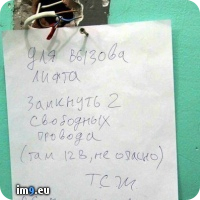 Для вызова
лифта
замкнуть 2
свободных
провода
(там 12В, не опасно)
ТСЖ
im9.eu